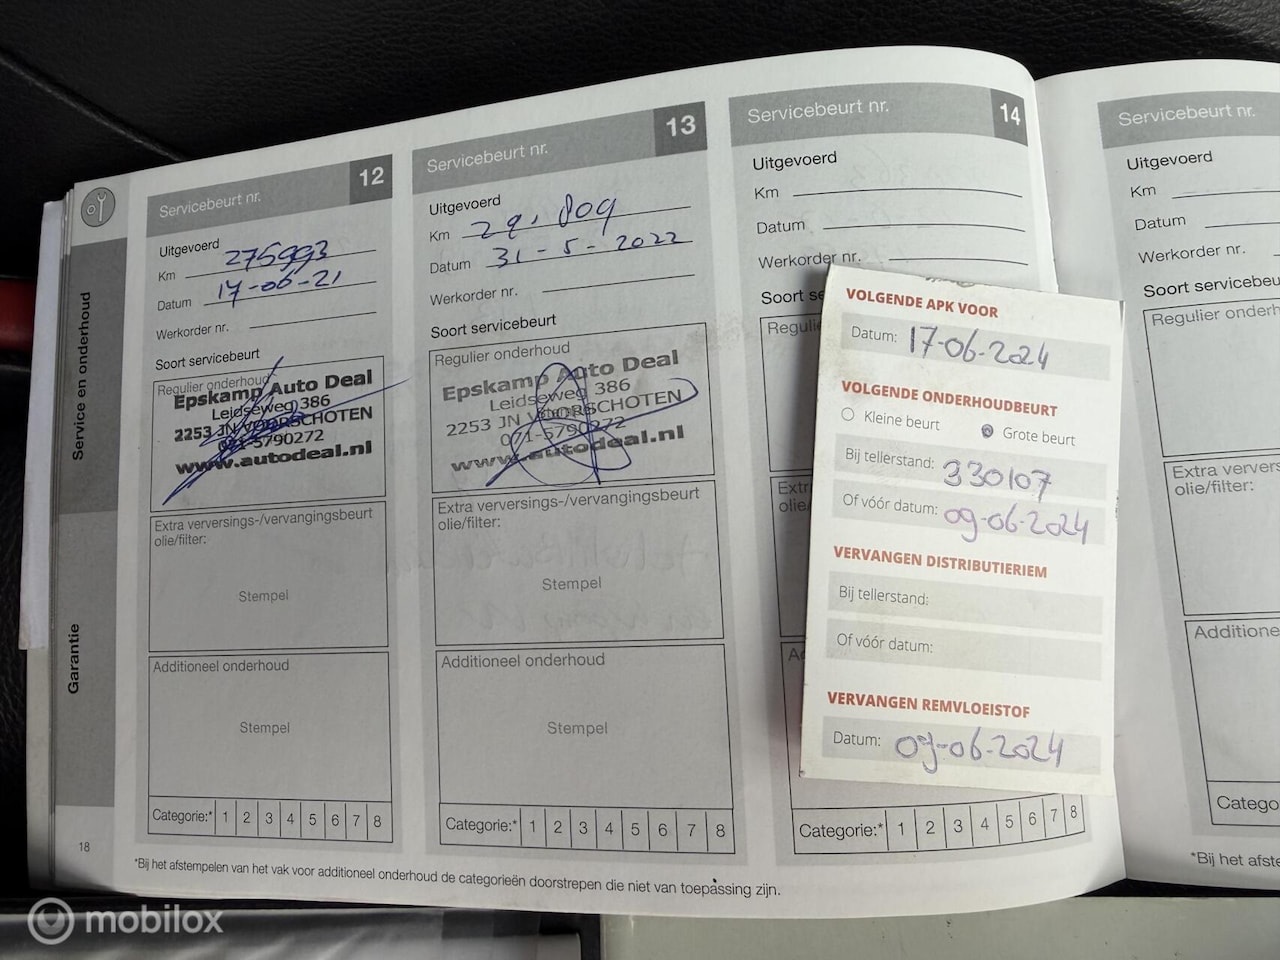 Service en onderhoud
Garantie
Servicebeurt nr. 12
Uitgevoerd
Km 275993
Datum 17-06-21
Werkorder nr.
Soort servicebeurt
Regulier onderhoud
Epskamp Auto Deal
Leidseweg 386
2253 JN VOORSCHOTEN
071-5790272
www.autodeal.nl
Extra verversings-/vervangingsbeurt
olie/filter:
Stempel
Additioneel onderhoud
Stempel
Categorie:* 1 2 3 4 5 6 7 8
Servicebeurt nr. 13
Uitgevoerd
Km
Datum 31-5-2022
Werkorder nr.
Soort servicebeurt
Regulier onderhoud
Epskamp Auto Deal
Leidseweg 386
2253 JN VOORSCHOTEN
071-5790272
www.autodeal.nl
Extra verversings-/vervangingsbeurt
olie/filter:
Stempel
Additioneel onderhoud
Stempel
Categorie:* 1 2 3 4 5 6 7 8
Servicebeurt nr. 14
Uitgevoerd
Km
Datum
Werkorder nr.
Soort se
Regulie
Extr
olie/
Ad
Categorie:* 1 2 3 4 5 6 7 8
VOLGENDE APK VOOR
Datum: 17-06-2024
VOLGENDE ONDERHOUDBEURT
Kleine beurt Grote beurt
Bij tellerstand: 330107
Of vóór datum: 09-06-2024
VERVANGEN DISTRIBUTIERIEM
Bij tellerstand:
Of vóór datum:
VERVANGEN REMVLOEISTOF
Datum: 09-06-2024
Servicebeurt nr.
Uitgevoerd
Km
Datum
Werkorder nr.
Soort servicebeu
Regulier onderh
Extraververs
olie/filter:
Additione
Catego
*Bij het afste
18
*Bij het afstempelen van het vak voor additioneel onderhoud de categorieën doorstrepen die niet van toepassing zijn.
mobilox